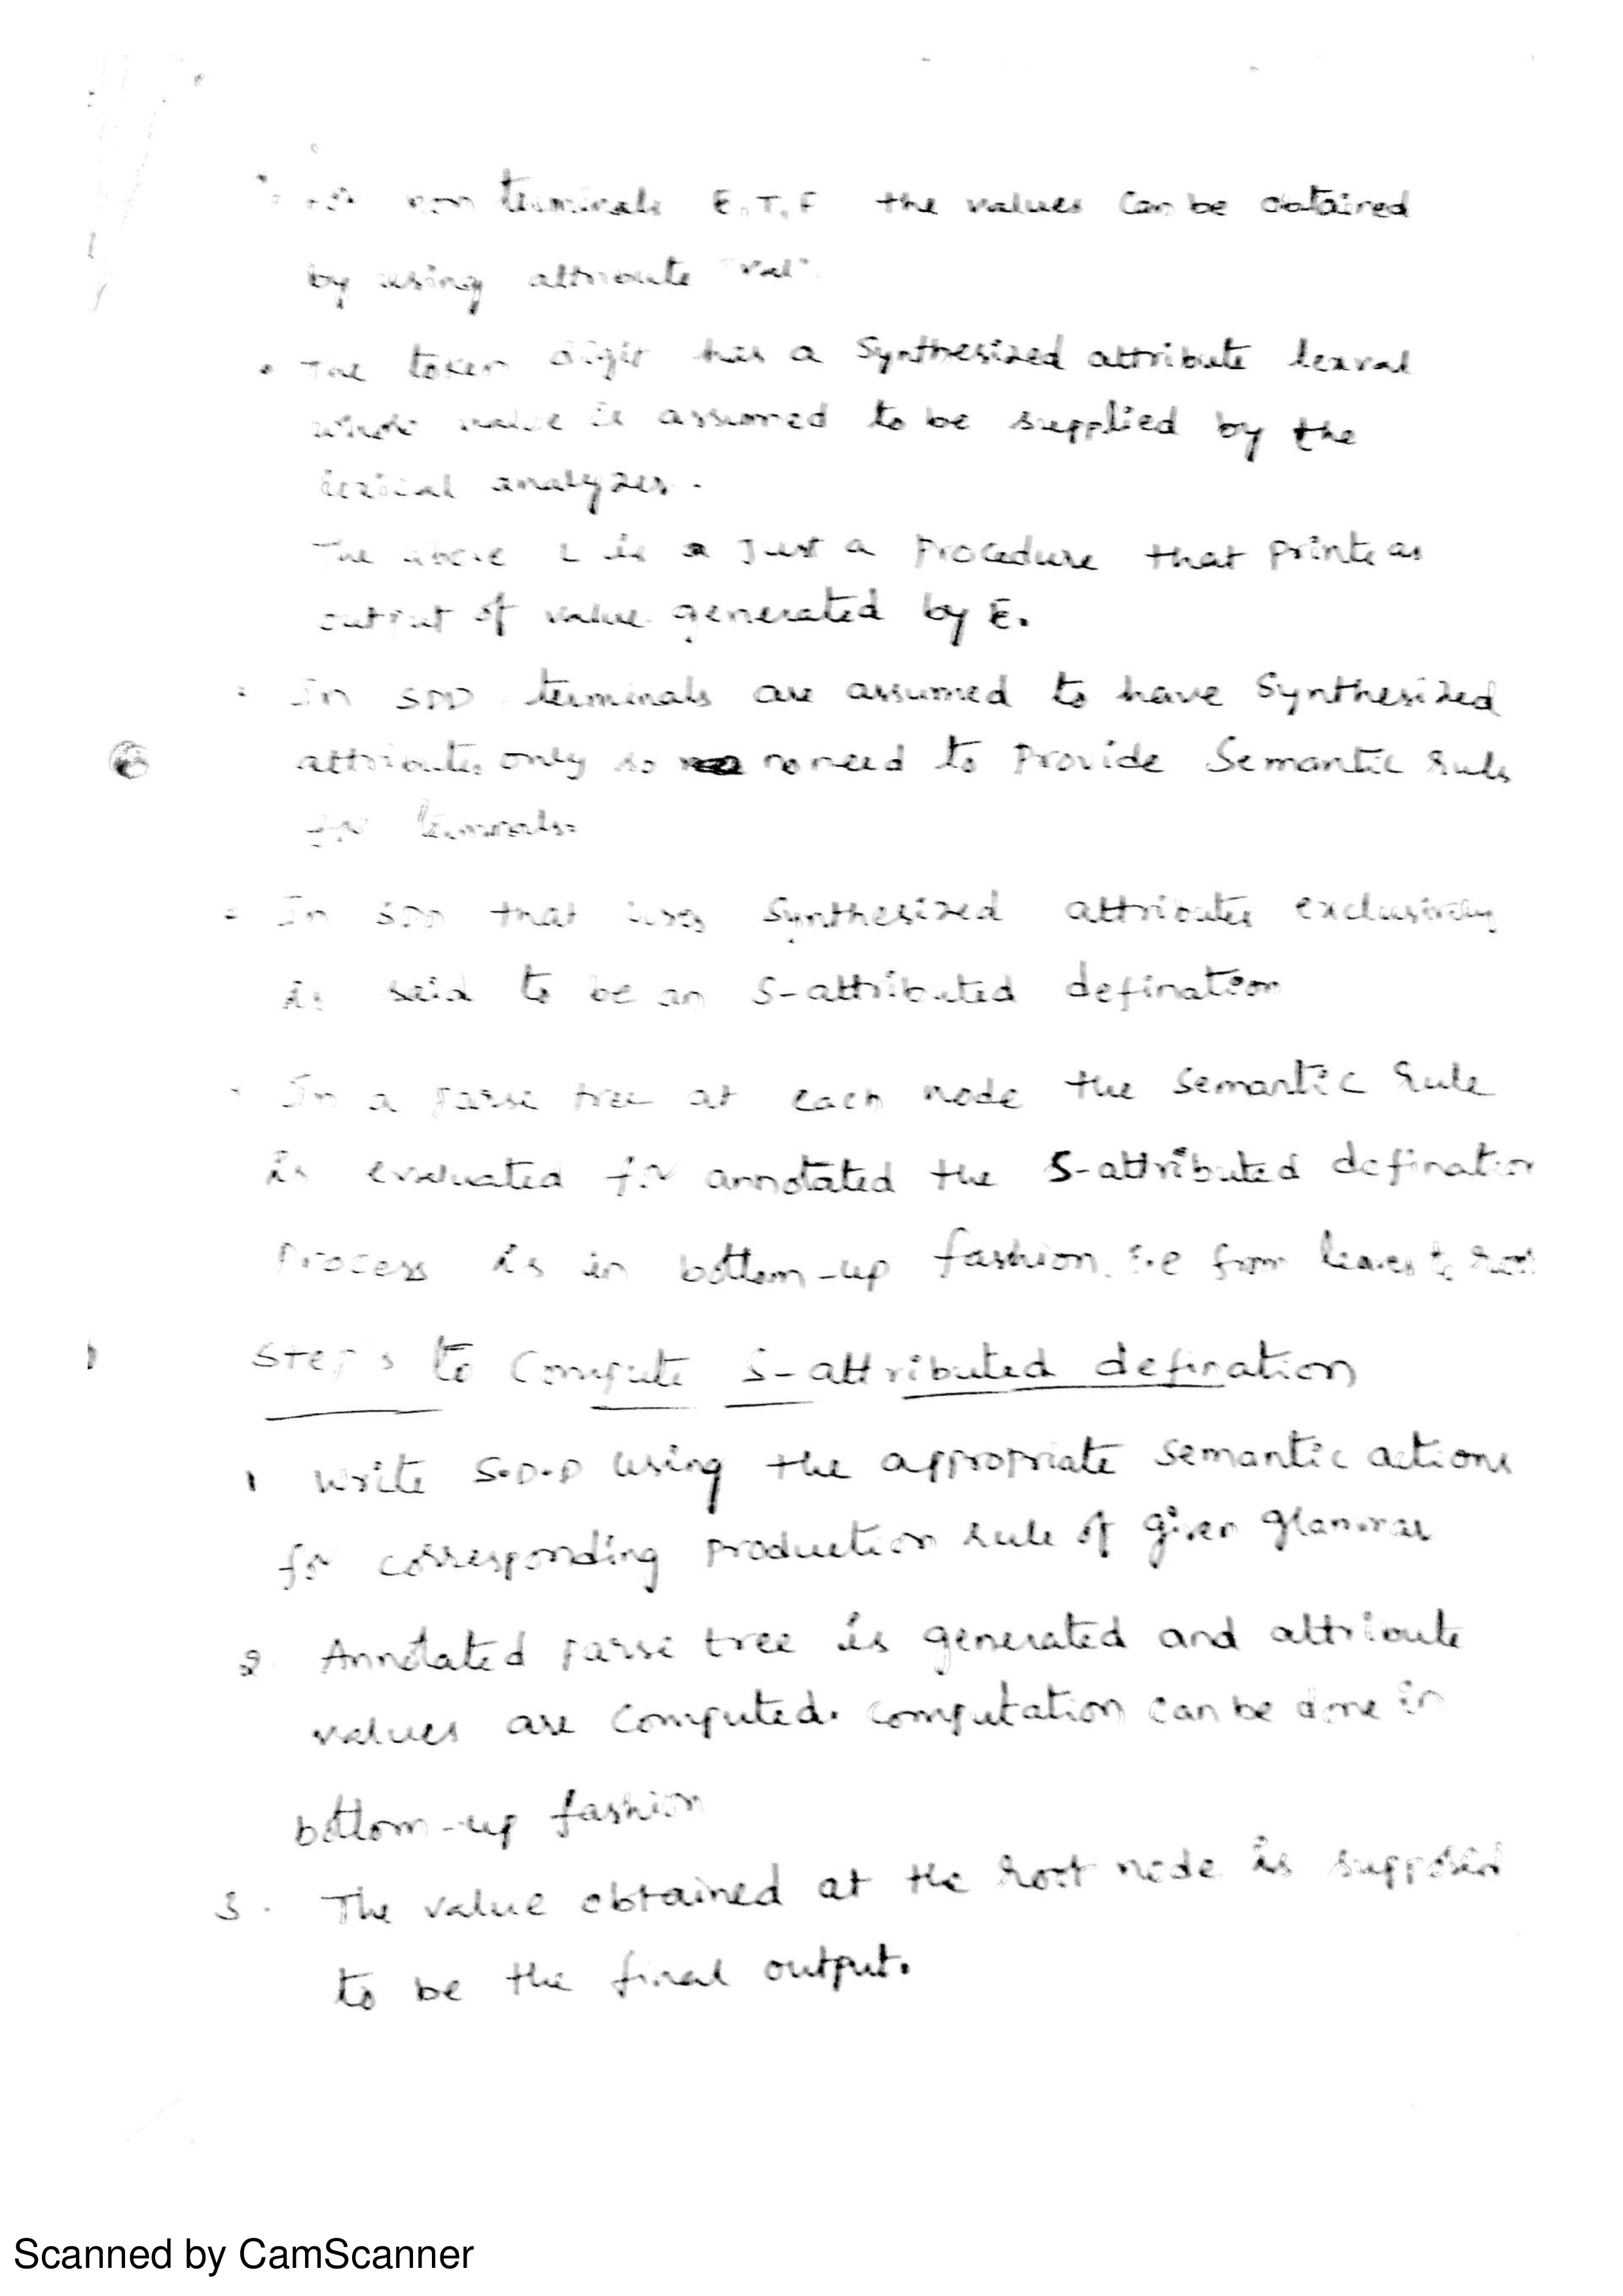 • For non terminals E, T, F the values can be obtained
by using attribute "val".
• The token digit has a Synthesized attribute lexval
whose value is assumed to be supplied by the
lexical analyzer.
The above L is a just a procedure that prints as
output of value generated by E.
• In SDD terminals are assumed to have Synthesized
attributes only so no need to provide Semantic rules
for terminals.
• In SDD that uses Synthesized attributes exclusively
is said to be an S-attributed defination
• In a parse tree at each node the semantic rule
is evaluated for annotated the S-attributed defination
process is in bottom-up fashion. i.e from leaves to root
Steps to Compute S-attributed defination
1 Write S.D.D using the appropriate semantic actions
for corresponding production rule of given grammar
2 Annotated parse tree is generated and attribute
values are computed. computation can be done in
bottom-up fashion
3. The value obtained at the root node is supposed
to be the final output.
Scanned by CamScanner